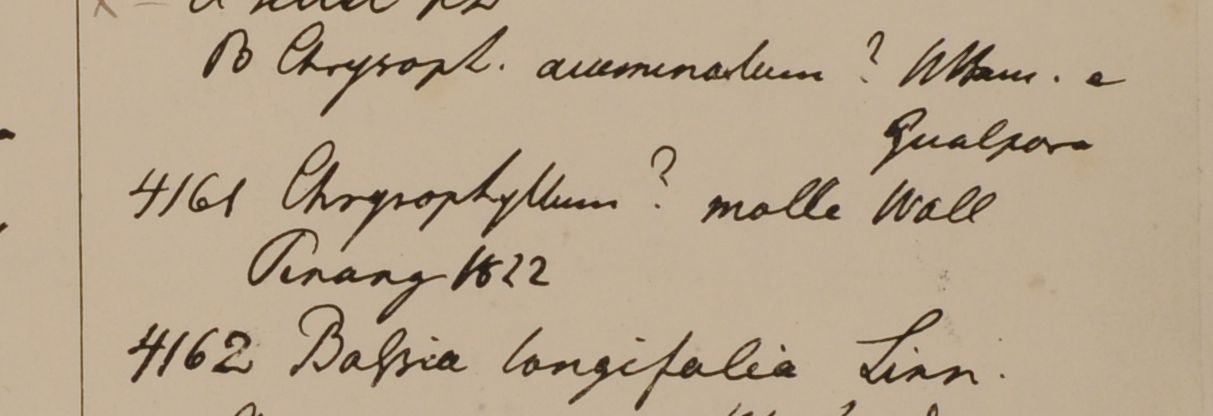 B Chrysoph. acuminatum? Ham. e
Gualpara
4161 Chrysophyllum? molle Wall
Penang 1822
4162 Bassia longifolia Linn.